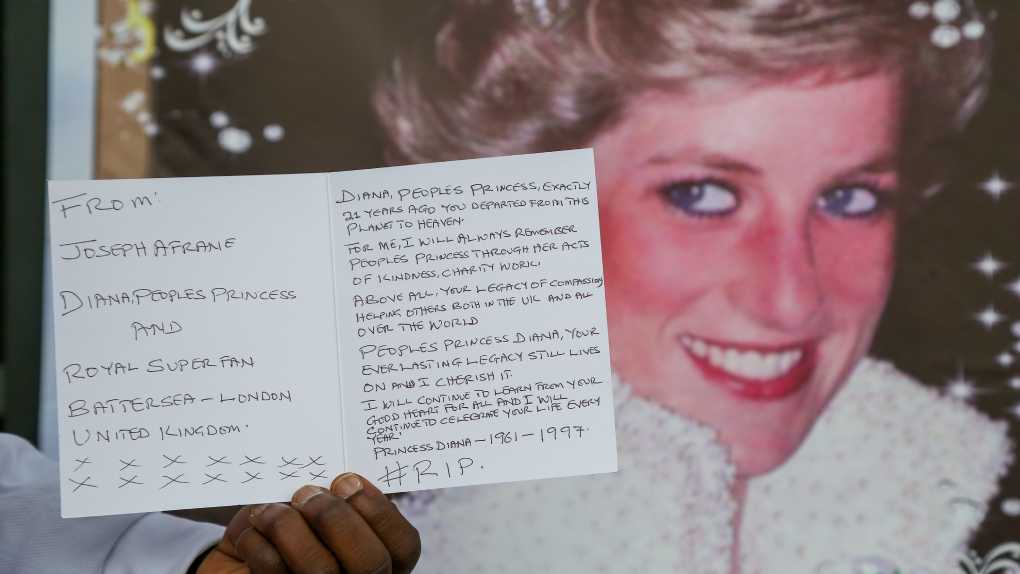 FROM:
JOSEPH AFRANE
DIANA, PEOPLES PRINCESS
AND
ROYAL SUPER FAN
BATTERSEA – LONDON
UNITED KINGDOM.
X X X X X X X
X X X X X X X
DIANA, PEOPLES PRINCESS, EXACTLY
21 YEARS AGO YOU DEPARTED FROM THIS
PLANET TO HEAVEN.
FOR ME, I WILL ALWAYS REMEMBER
PEOPLES PRINCESS THROUGH HER ACTS
OF KINDNESS, CHARITY WORK.
ABOVE ALL, YOUR LEGACY OF COMPASSION
HELPING OTHERS BOTH IN THE UK AND ALL
OVER THE WORLD
PEOPLES PRINCESS DIANA, YOUR
EVERLASTING LEGACY STILL LIVES
ON AND I CHERISH IT.
I WILL CONTINUE TO LEARN FROM YOUR
GOOD HEART FOR ALL AND I WILL
CONTINUE TO CELEGRATE YOUR LIFE EVERY
YEAR.
PRINCESS DIANA – 1961 – 1997.
#RIP.